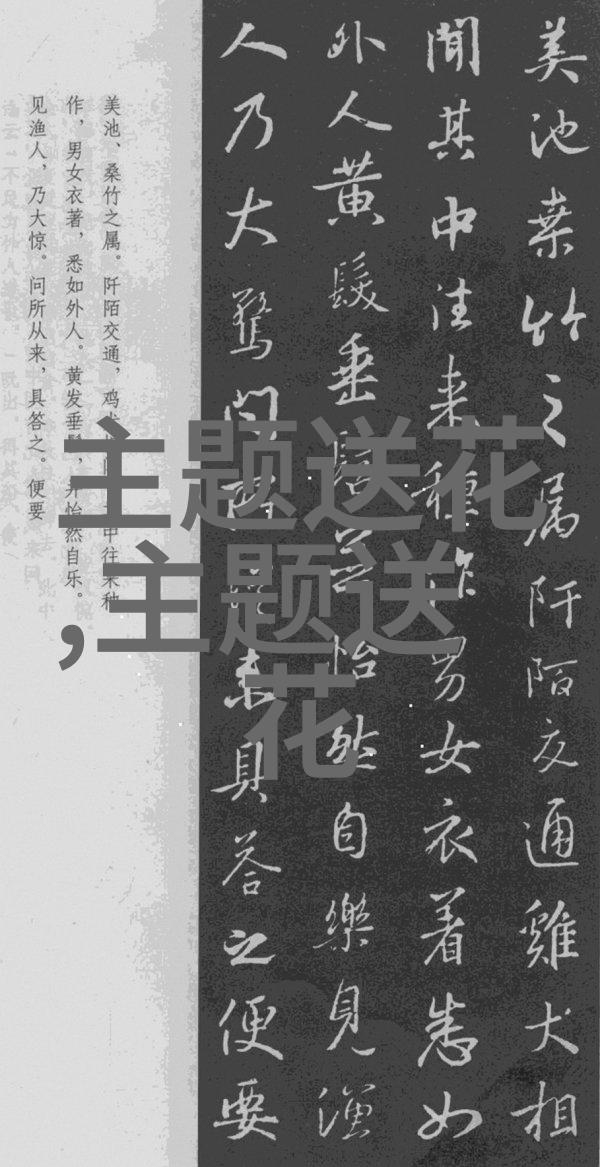 美池桒竹之属阡陌交通雞犬相
聞其中往来種作男女衣着悉如
外人黄髮垂髫並怡然自樂見漁
人乃大驚問所従来具答之便要
美池、桑竹之属。阡陌交通，鸡犬中往来种
作，男女衣著，悉如外人。黄发垂，并怡然自乐。
见渔人，乃大惊。问所从来，具答之。便要
主题送花
,主题送
花